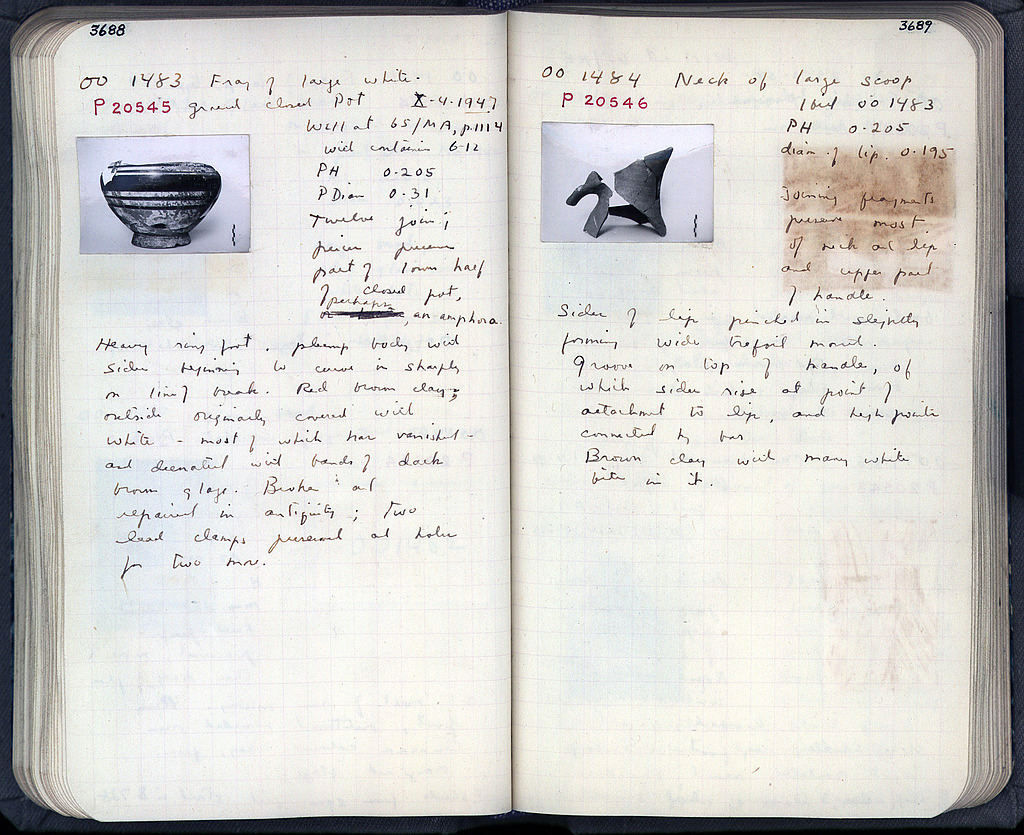 3688
OO 1483 Frag of large white.
P 20545 ground closed Pot X-4-1947
Well at 65/MA, p.1114
with container 6-12
PH 0.205
P Diam 0.31
Twelve join;
pieces preserve
part of lower half
of closed pot,
perhaps, an amphora.
Heavy ring foot. plump body with
sides beginning to curve in sharply
on line of break. Red brown clay;
outside originally covered with
white - most of which has vanished -
and decorated with bands of dark
brown glaze. Broken and
repaired in antiquity; two
lead clamps preserved and holes
for two more.
3689
OO 1484 Neck of large scoop
P 20546 Ibid OO 1483
PH 0.205
diam of lip. 0.195
Joining fragments
preserve most
of neck and lip
and upper part
of handle.
Sides of lip pinched in slightly
forming wide trefoil mouth.
Groove on top of handle, of
which sides rise at point of
attachment to lip, and high points
connected by bar
Brown clay with many white
bits in it.